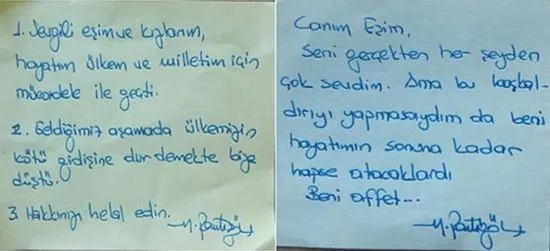 1. Sevgili eşim ve kızlarım,
hayatım ülkem ve milletim için
mücadele ile geçti.
2. Geldiğimiz aşamada ülkemizin
kötü gidişine dur demekte bize
düştü.
3. Hakkınızı helal edin.
Canım Eşim,
Seni gerçekten her şeyden
çok sevdim. Ama bu
dırıyı yapmasaydım da beni
hayatımın sonuna kadar
hapse atacaklardı
Beni affet...